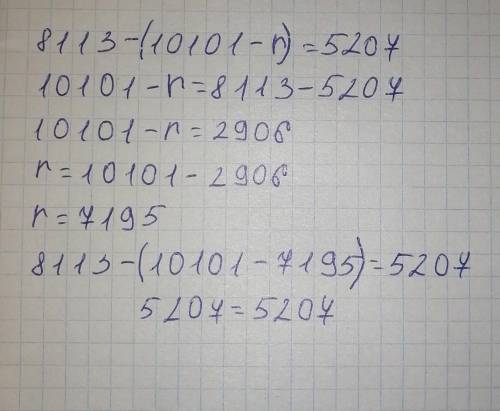 8113-(10101-r)=5207
10101-r=8113-5207
10101-r=2906
r=10101-2906
r=7195
8113-(10101-7195)=5207
5207=5207